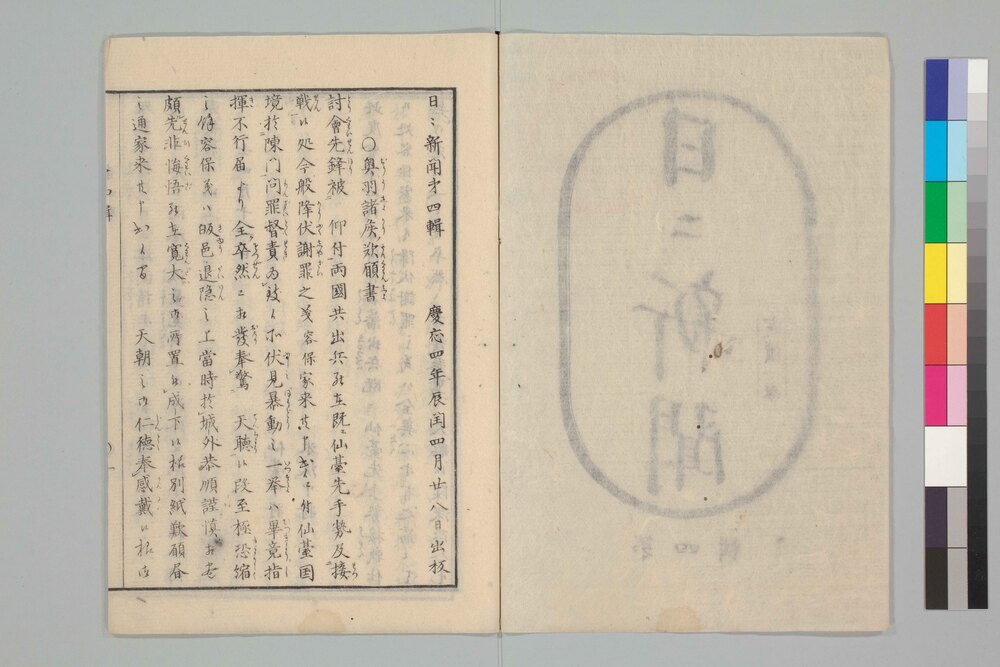 日〻新聞才四輯　慶応四年辰閏四月廿八日出板
〇奥羽諸侯欵願書
討會先鋒被　仰付両國共出兵罷在既ニ仙臺先手勢及接
戦候処今般降伏謝罪之義容保家来共ゟ仙臺国
境於陳門問罪督責為致候所伏見暴動之一挙ハ畢竟指
揮不行届ゟ全卒然ニ相發奉驚　天聴候段至極恐縮
之餘容保義ハ城邑退隠之上當時於城外恭順謹慎
頗先非悔悟罷在寛大之御所置被成下候様別紙歎願
之通家来共ゟ申出候間　天朝之御仁徳奉感戴候様